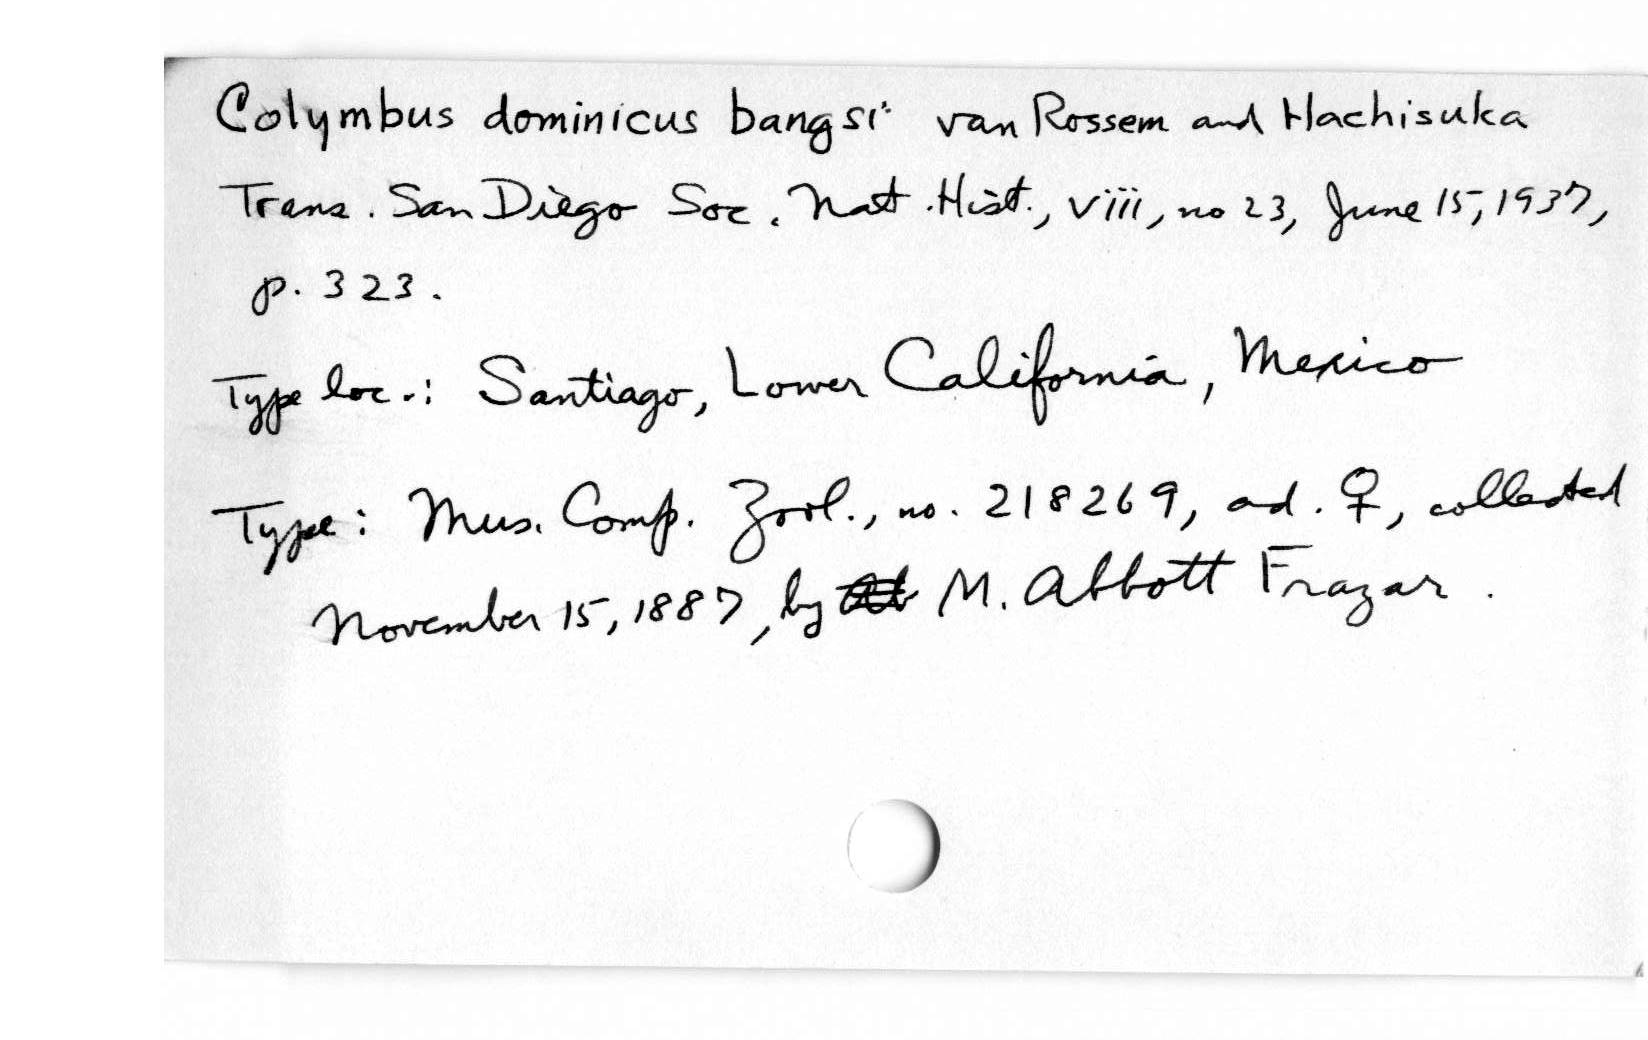 Colymbus dominicus bangsi van Rossem and Hachisuka
Trans. San Diego Soc. Nat. Hist., viii, no 23, June 15, 1937,
p. 323.
Type loc.: Santiago, Lower California, Mexico
Type: Mus. Comp. Zool., no. 218269, ad. ♀, collected
November 15, 1887, by M. Abbott Frazar.